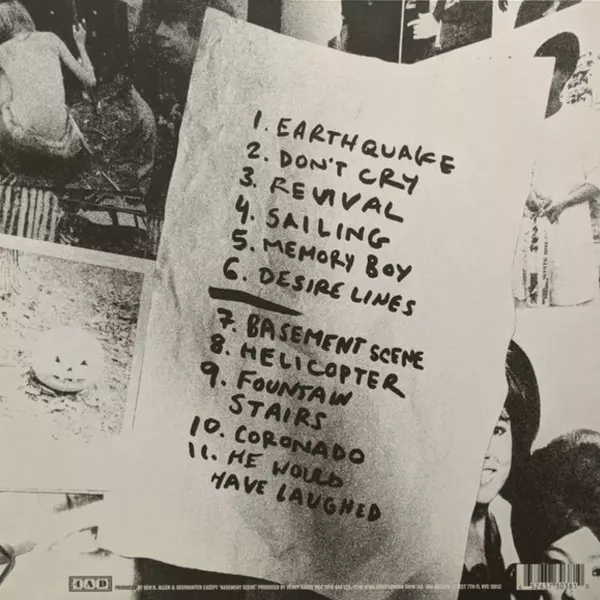 1. EARTHQUAKE
2. DON'T CRY
3. REVIVAL
4. SAILING
5. MEMORY BOY
6. DESIRE LINES
7. BASEMENT SCENE
8. HELICOPTER
9. FOUNTAIN
STAIRS
10. CORONADO
11. HE WOULD
HAVE LAUGHED
4AD
PRODUCED BY BEN H. ALLEN & DEERHUNTER EXCEPT 'BASEMENT SCENE' PRODUCED BY HENRY